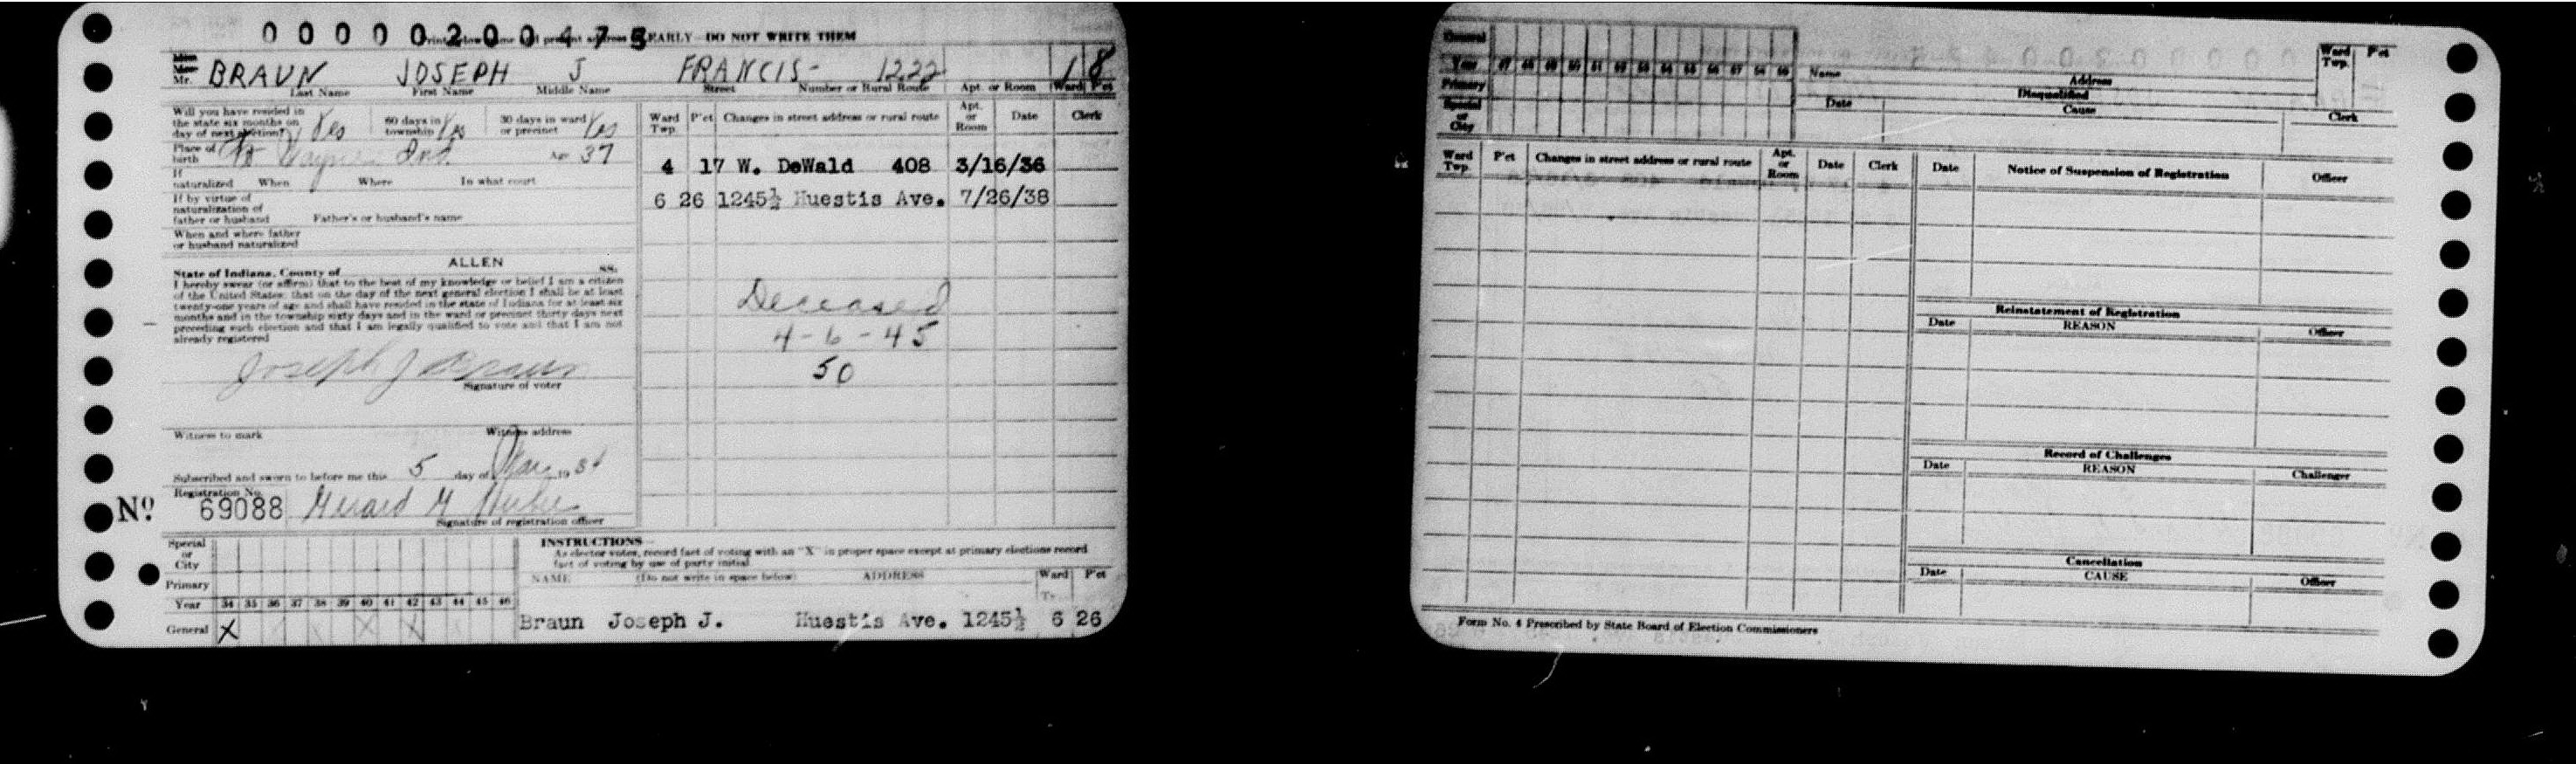 0 0 0 0 0 2 0 0 4 7 5
EARLY—DO NOT WRITE THEM
Mr. BRAUN JOSEPH J FRANCIS- 1222 1 8
Last Name First Name Middle Name Street Number or Rural Route Apt. or Room Ward P'ct
Will you have resided in the state six months on day of next election? Yes 60 days in township Yes 30 days in ward or precinct Yes
Place of birth Ft Wayne Ind. Age 37
If naturalized When Where In what court
If by virtue of naturalization of father or husband Father's or husband's name
When and where father or husband naturalized
ALLEN
State of Indiana, County of ss.
I hereby swear (or affirm) that to the best of my knowledge or belief I am a citizen
of the United States; that on the day of the next general election I shall be at least
twenty-one years of age and shall have resided in the state of Indiana for at least six
months and in the township sixty days and in the ward or precinct thirty days next
preceding such election and that I am legally qualified to vote and that I am not
already registered
Joseph J Braun
Signature of voter
Witness to mark Witness address
Subscribed and sworn to before me this 5 day of Mar 19 34
Registration No.
No 69088 M
Signature of registration officer
Ward Twp. P'ct Changes in street address or rural route Apt. or Room Date Clerk
4 17 W. DeWald 408 3/16/36
6 26 1245½ Huestis Ave. 7/26/38
Deceased
4-6-45
50
Special or City
Primary
Year 34 35 36 37 38 39 40 41 42 43 44 45 46
General X X X
INSTRUCTIONS
As elector votes, record fact of voting with an "X" in proper space except at primary elections record
fact of voting by use of party initial.
NAME (Do not write in space below) ADDRESS Ward P'ct
Braun Joseph J. Huestis Ave. 1245½ 6 26
General
Year
Primary
Special or City
Name Address Ward Twp. P'ct
Disqualified
Date Cause Clerk
Ward Twp. P'ct Changes in street address or rural route Apt. or Room Date Clerk
Date Notice of Suspension of Registration Officer
Reinstatement of Registration
Date REASON Officer
Record of Challenges
Date REASON Challenger
Cancellation
Date CAUSE Officer
Form No. 4 Prescribed by State Board of Election Commissioners